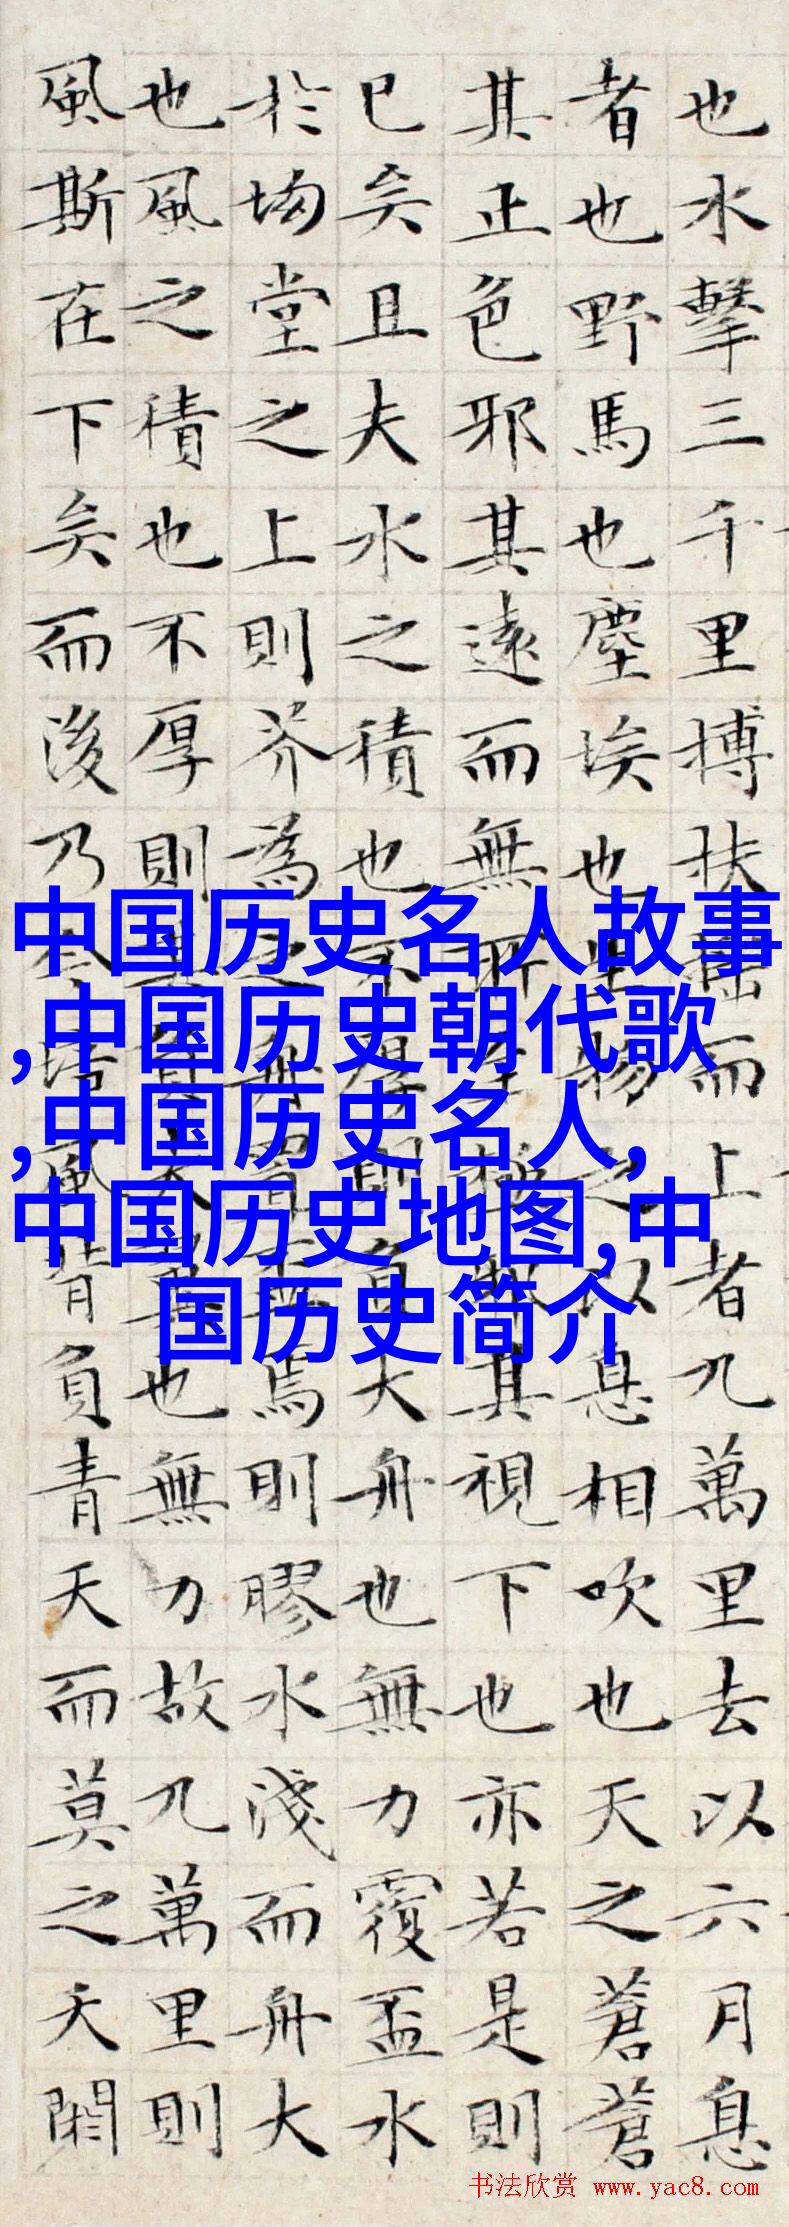 也水擊三千里搏扶搖而上者九萬里去以六月息
者也野馬也塵埃也生物之以息相吹也天之蒼蒼
其正色邪其遠而無所至極邪其視下也亦若是則
已矣且夫水之積也不厚則負大舟也無力覆盃水
於坳堂之上則芥為之舟置盃焉則膠水淺而舟大
也風之積也不厚則其負大翼也無力故九萬里則
風斯在下矣而後乃今培風背負青天而莫之夭閼
中国历史名人故事
,中国历史朝代歌
,中国历史名人,
中国历史地图,中
国历史简介
书法欣赏 www.yac8.com